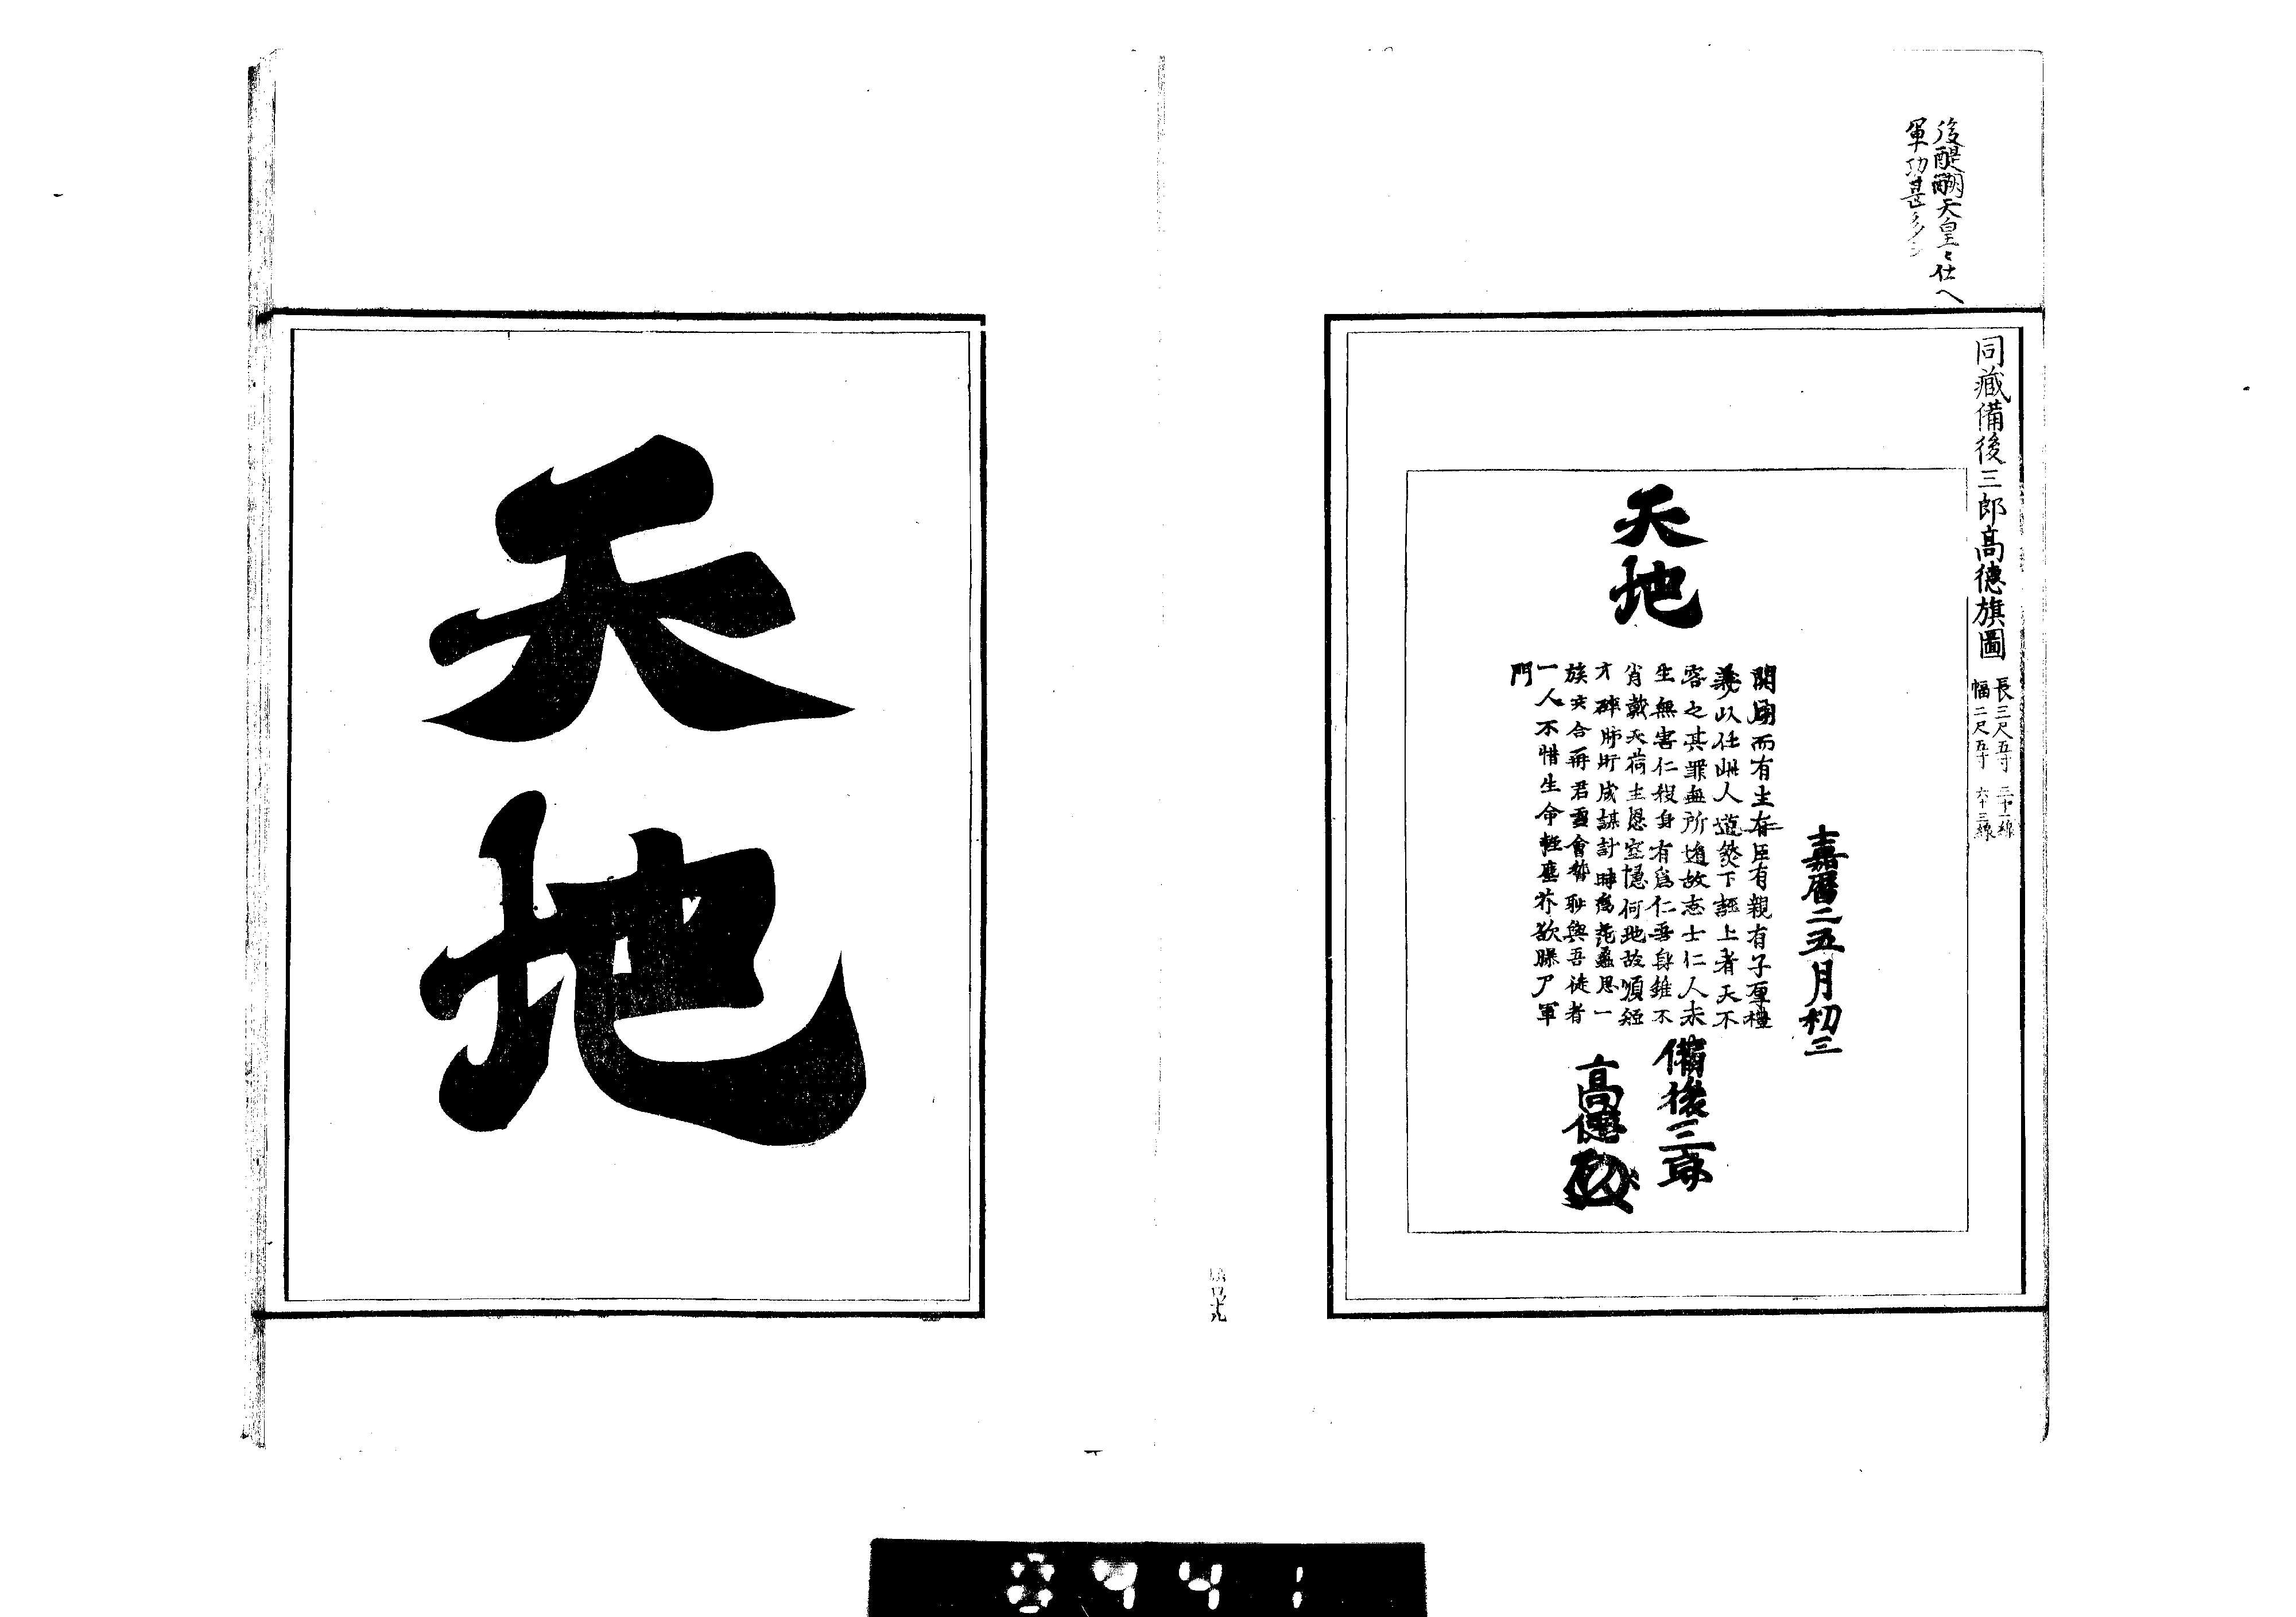 後醍醐天皇ニ仕ヘ
軍功甚多シ
同藏備後三郎高德旗圖
長三尺五寸
幅二尺五寸
嘉曆二五月初三
天地
開闢而有主有臣有親有子厚禮
義以任此人道然下誣上者天不
容之其罪無所逃故志士仁人未
生無害仁殺身有爲仁吾身雖不
肖戴天荷主恩空隱何地故順短
才碎肺肝成謀計時爲 思一
族 合再君 會 耻與吾徒者
一人不惜生命輕塵芥欲 尸軍
門
備後三郎
高德
天地
0741